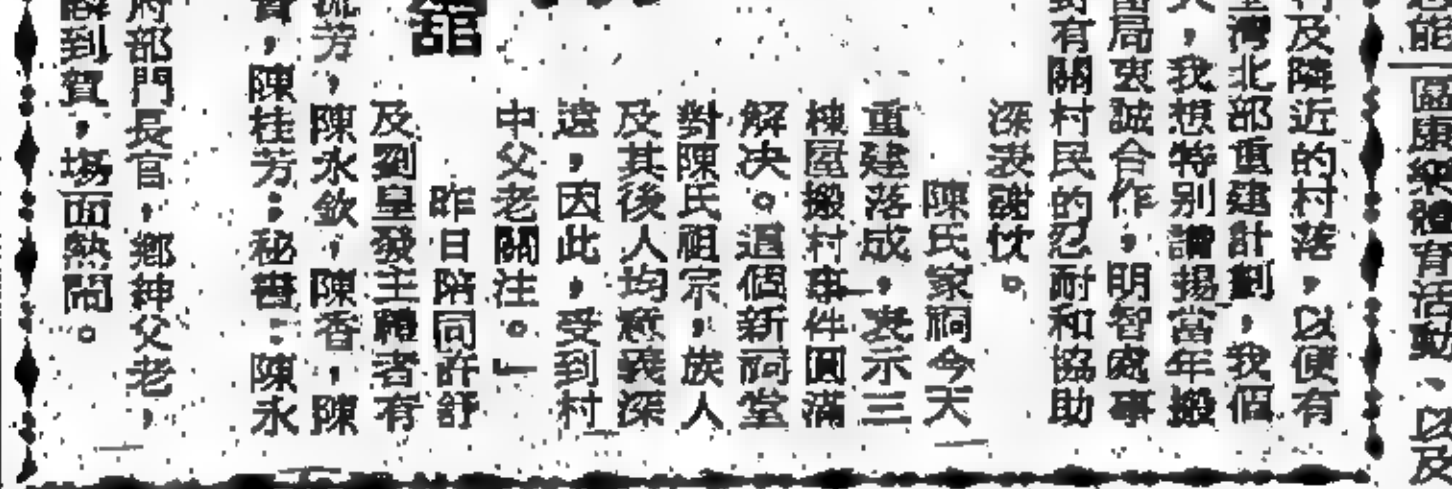 村及隣近的村落，以便有
灣北部重建計劃，我個
人，我想特别讚揚當年搬
當局衷誠合作，明智處事
對有關村民的忍耐和協助
深表謝忱。
陳氏家祠今天
重建落成，表示三
棟屋搬村事件圓滿
解決。這個新祠堂
對陳氏祖宗，族人
及其後人均意義深
遠，因此，受到村
中父老關注。」
昨日陪同許舒
及劉皇發主禮者有
陳永欽，陳香，陳
芳，
陳桂芳；秘書：陳永
府部門長官，鄉紳父老，
到賀，場面熱鬧。
舘
能
區康樂體育活動、以及